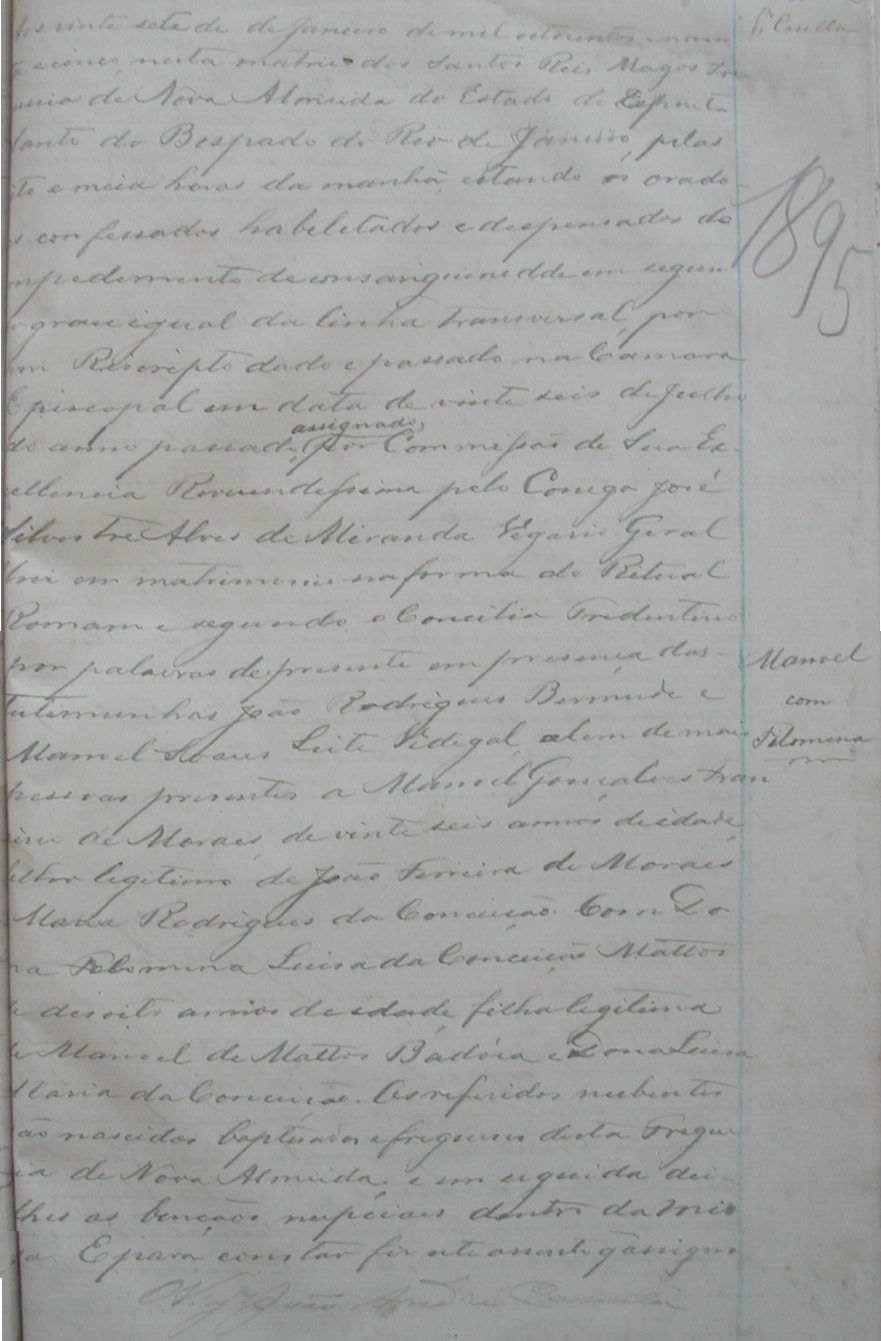 vinte sete de de Janeiro de mil oitocentos e noven
e cinco, nesta matriz dos Santos Reis Magos Fre
de Nova Almeida do Estado do Espirit
Santo do Bispado do Rio de Janeiro, pelas
e meia horas da manhã, estando os orado
confessados habeletados e despensados do
mpedimento de consanguenedde em segun
grau igual da linha transversal, por
um Rescripto dado e passado na Camara
Episcopal em data de vinte seis de Julho
do anno passado, assignado, por Commissão de Sua Ex-
cellencia Reverendessima pelo Conego José
Silvestre Alves de Miranda Vigario Geral
em matrimonio na forma do Ritual
Romam e segundo o Concilio Tredentino
por palavras de presente em presença das
testimunhas João Rodrigues Bermude e
Manoel Soares Leite Vidigal, alem de mais
pessoas presentes a Manoel Gonçalves Fran
de Moraes, de vinte seis annos de idade,
filho legitimo de João Ferreira de Moraes
Maria Rodrigues da Conceição. Com Do
na Felomina Luisa da Conceição Mattos
de desoito annos de edade, filha legitima
de Manoel de Mattos Badóca e Dona Luisa
Maria da Conceição. Os referidos nubentes
são nascidos baptisados e fregueses desta Fregue
zia de Nova Almeida, e em seguida dei-
lhes as bençãos nupciaes dentro da Mis
sa E para constar fiz este assento q assigno
O Vigr João André Casella
Casella
1895
Manoel
com
Filomena